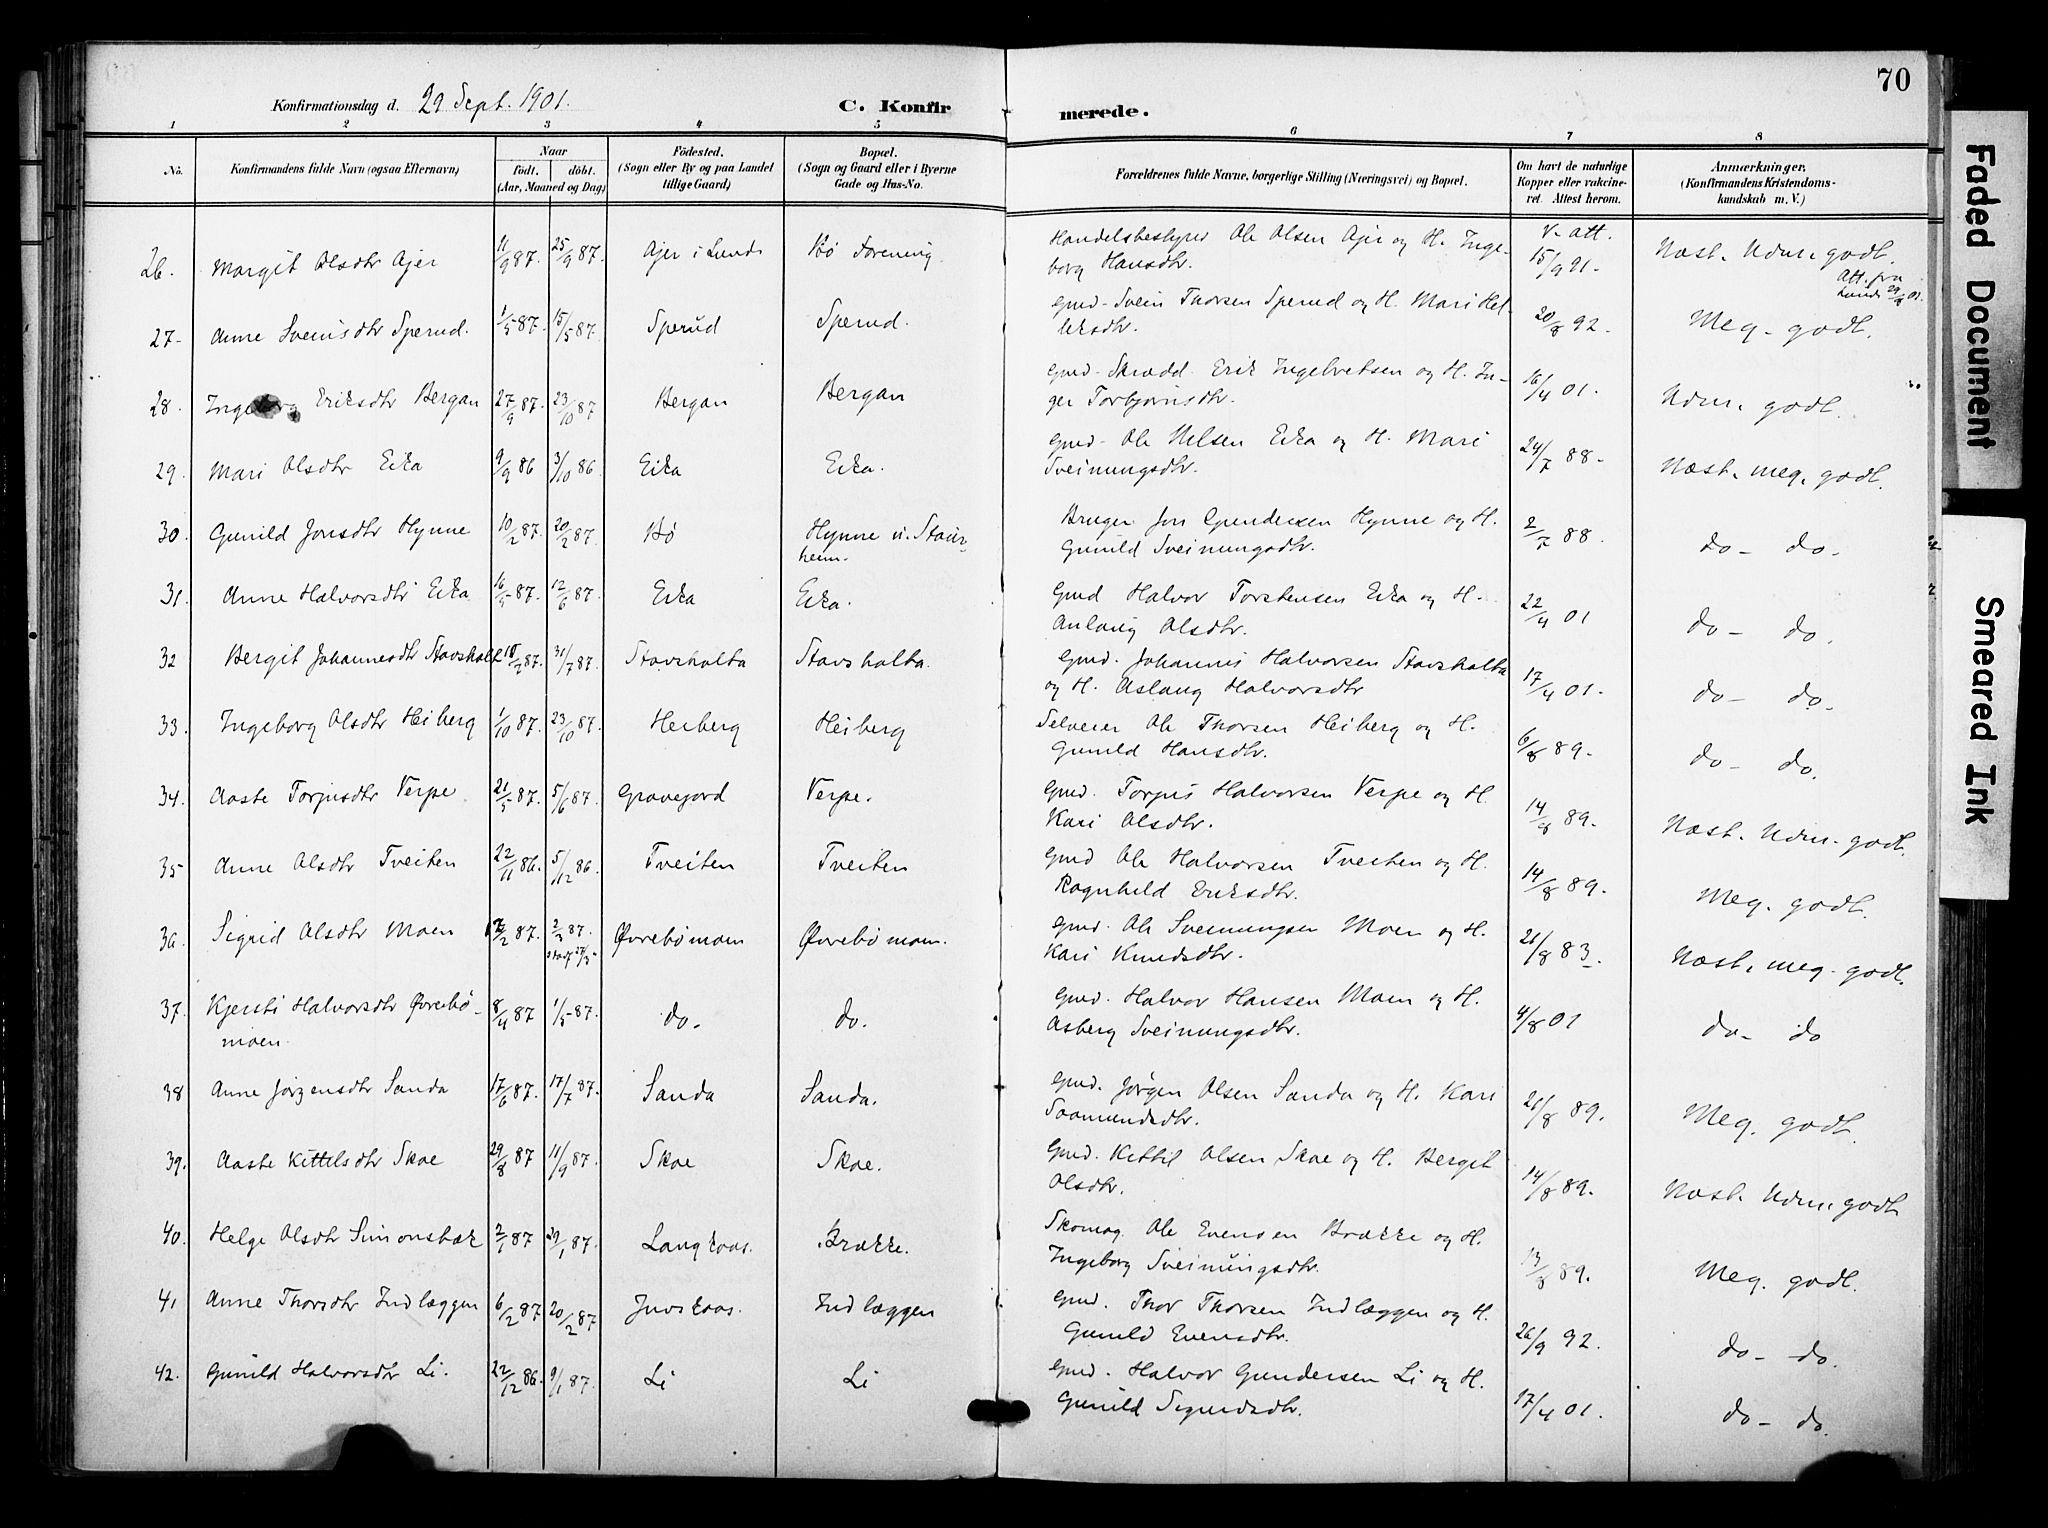 70
Konfirmationsdag d. 29 Sept. 1901.
C. Konfirmerede.
1 2 3 4 5 6 7 8
No.
Konfirmandens fulde Navn (ogsaa Efternavn)
Naar
født. døbt.
(Aar, Maaned og Dag)
Födested.
(Sogn eller By og paa Landet
tillige Gaard)
Bopæl.
(Sogn og Gaard eller i Byerne
Gade og Hus-No.
Forældrenes fulde Navne, borgerlige Stilling (Næringsvei) og Bopæl.
Om havt de naturlige
Kopper eller vakcine-
ret. Attest herom.
Anmærkninger.
(Konfirmandens Kristendoms-
kundskab m. V.)
26. Margit Olsdtr Ajer 11/9 87. 25/9 87. Ajer i Lunde Bø Forening. Handelsbestyrer Ole Olsen Ajer og H. Inge- V. att. Næst. Udm. godt.
borg Hansdtr. 15/9 91. Att. fra
Lunde 29/9 01.
27. Anne Sveinsdtr Sperud. 1/5 87. 15/5 87. Sperud Sperud. Gmd. Svein Thorsen Sperud og H. Mari Hel- 20/8 92. Meg. godt.
leksdtr.
28. Ingeborg Eriksdtr Bergan 27/9 87. 23/10 87 Bergan Bergan Gmd. Skrædd. Erik Ingebretsen og H. In- 16/4 01. Udm. godt.
ger Torbjørnsdtr.
29. Mari Olsdtr Eika 9/9 86 3/10 86. Eika Eika. Gmd. Ole Nelsen Eika og H. Mari 24/7 88. Næst. meg. godt.
Sveinungsdtr.
30. Gunild Jonsdtr Hynne 10/2 87. 20/2 87. Bø Hynne u. Staur- Bruger Jon Gundersen Hynne og H. 2/7 88. do - do.
heim. Gunild Sveinungsdtr.
31. Anne Halvorsdtr Eika 16/5 87. 12/6 87. Eika Eika. Gmd Halvor Torstensen Eika og H. 22/4 01 do - do.
Anlaug Olsdtr.
32 Bergit Johannesdtr Stavsholt 10/7 87. 31/7 87. Stavsholta Stavsholta. Gmd. Johannes Halvorsen Stavsholta 17/4 01. do - do.
og H. Aslaug Halvorsdtr
33. Ingeborg Olsdtr Heiberg 1/10 87. 23/10 87. Heiberg Heiberg Selveier Ole Thorsen Heiberg og H. 6/8 89. do - do.
Gunild Hansdtr.
34. Aaste Torjusdtr Verpe 21/5 87. 5/6 87. Gravejord Verpe. Gmd. Torjus Halvorsen Verpe og H. 14/8 89. Næst. Udm. godt.
Kari Olsdtr.
35 Anne Olsdtr Tveiten 22/11 86. 5/12 86. Tveiten Tveiten Gmd Ole Halvorsen Tveiten og H. 14/8 89. Meg. godt.
Ragnhild Eriksdtr.
36. Sigrid Olsdtr Moen 12/2 87. 2/3 87. Øvrebømoen Øvrebømoen. Gmd. Ole Sveinungsen Moen og H. 21/8 83. Næst. meg. godt.
stadf 27/3 Kari Knudsdtr.
37. Kjersti Halvorsdtr Øvrebø- 8/4 87 1/5 87. do. do. Gmd. Halvor Hansen Moen og H. 4/8 01 do - do
moen. Asberg Sveinungsdtr.
38 Anne Jørgensdtr Sanda 17/6 87. 17/7 87. Sanda Sanda. Gmd. Jørgen Olsen Sanda og H. Kari 21/8 89. Meg. godt.
Saamundsdtr.
39. Aaste Kittelsdtr Skoe 29/8 87 11/9 87. Skoe Skoe. Gmd. Kittil Olsen Skoe og H. Bergit 14/8 89. Næst. Udm. godt
Olsdtr.
40. Helge Olsdtr Simonsbæk 2/1 87 29/1 87. Langkaas. Brække. Skomag. Ole Evensen Brække og H. 13/8 89. Meg. godt.
Ingeborg Sveinungsdtr.
41 Anne Thorsdtr Indlæggen 6/2 87 20/2 87 Juvskaas. Indlæggen Gmd. Thor Thorsen Indlæggen og H. 26/9 92. do - do.
Gunild Evensdtr.
42. Gunild Halvorsdtr Li. 22/12 86. 9/1 87. Li Li Gmd. Halvor Gundersen Li og H. 17/4 01. do - do.
Gunild Sigurdsdtr.
Faded Document
Smeared Ink